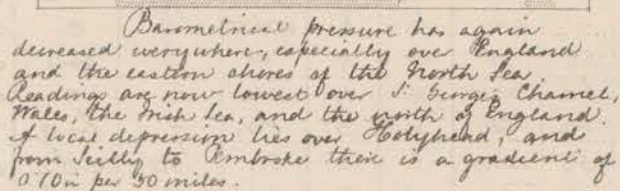 Barometrical pressure has again
decreased everywhere, especially over England
and the eastern shores of the North Sea
Readings are now lowest over St Georges Channel,
Wales, the Irish Sea, and the north of England.
A local depression lies over Holyhead, and
from Scilly to Pembroke there is a gradient of
0.10 in per 50 miles.